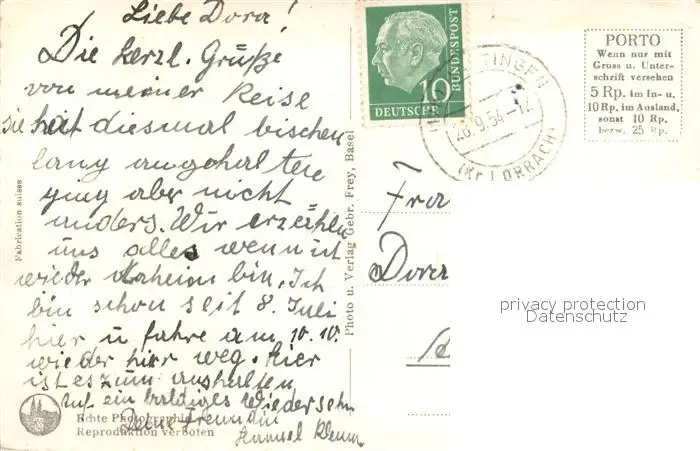 Liebe Dora!
Die herzl. Grüße
von meiner Reise
sie hat diesmal bischen
lang angehalten
ging aber nicht
anders. Wir erzählen
uns alles wenn ich
wieder daheim bin. Ich
bin schon seit 8. Juli
hier u fahre am 10.10.
wieder hier weg. Hier
ist es zum aushalten
Auf ein baldiges Wiedersehn
Deine Freundin
Fabrication suisse
Echte Photographie
Reproduktion verboten
Photo u. Verlag Gebr. Frey, Basel
10
DEUTSCHE
BUNDESPOST
TINGEN
28.9.54-17
(Kr LÖRRACH)
PORTO
Wenn nur mit
Gruss u. Unter-
schrift versehen
5 Rp. im In- u.
10 Rp. im Ausland,
sonst 10 Rp.
bezw. 25 Rp.
Fra
Dora
privacy protection
Datenschutz